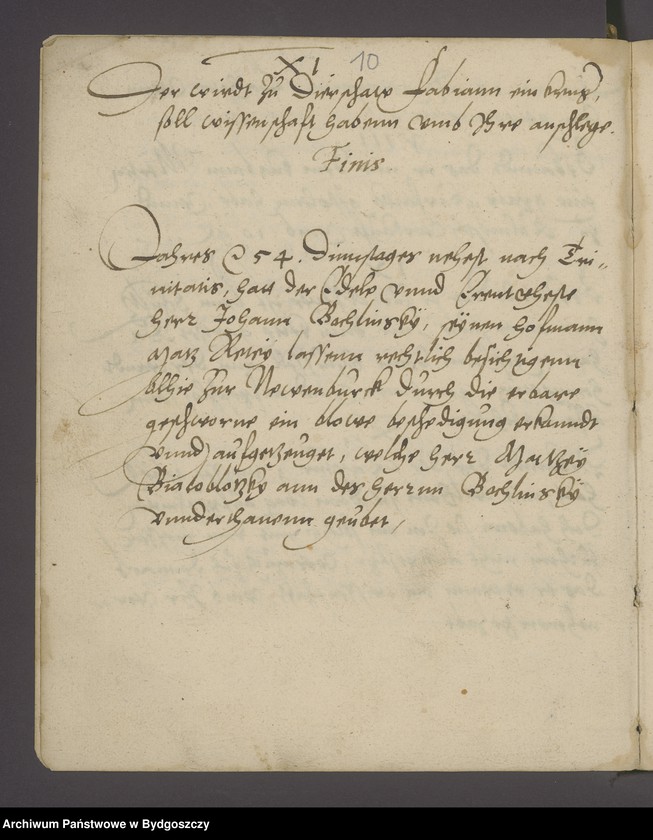 XI 10
Der wirdt zu Dierschaw Fabiann ein krug,
soll wissenschaft habenn umb Ihre anschlege.
Finis.
Jahres 54. Dinnstages nehest nach Tri-
nitatis, hatt der Edele unnd Erentvheste
herr Johann Bachlinsky, seynen hofmann
Matz lassenn rechtlich besichtigenn
alhie zur Newenburck durch die erbare
geschworne ein blowe beschedigung erkanndt
unnd aufgetzeuget, welche herr Matzey
Bialoblotzky ann des herrnn Bachlinsky
unnderthanenn geubet,
Archiwum Państwowe w Bydgoszczy